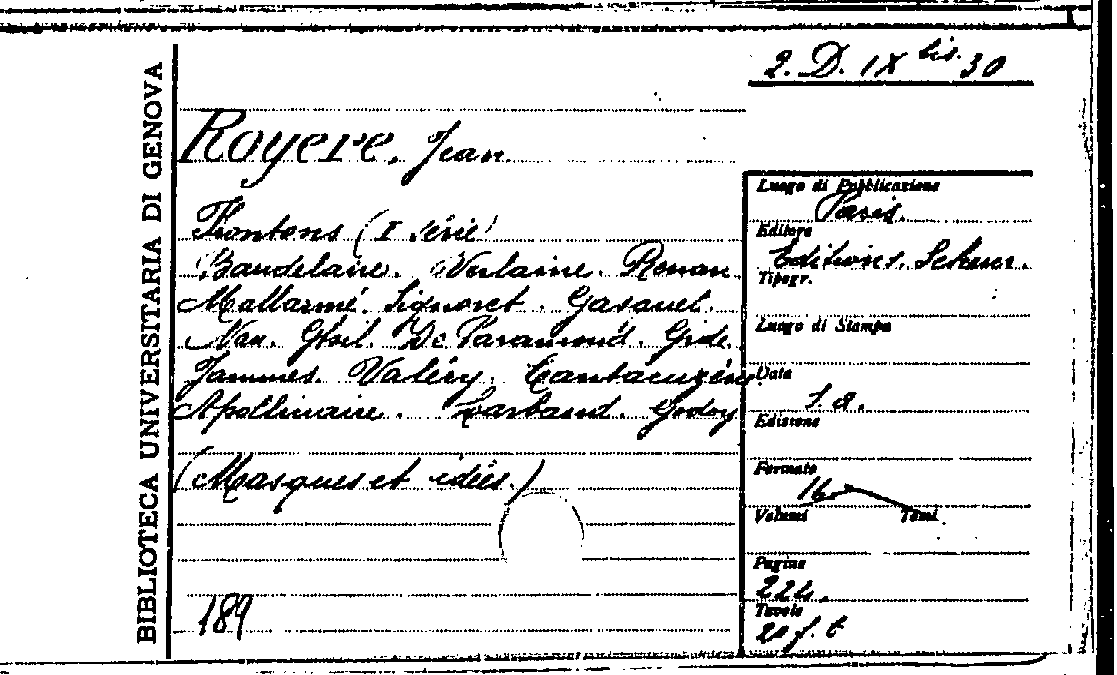 BIBLIOTECA UNIVERSITARIA DI GENOVA
2. D. IX bis. 30
Royere, Jean
Frontons (I série)
Baudelaire. Verlaine. Renan
Mallarmé. Signoret. Gasquet.
Nau. Ghil. De Faramond. Gide.
Jammes. Valéry. Cantacuzène
Apollinaire. Larbaud. Godoy
(Masques et idées.)
189
Luogo di Pubblicazione
Paris.
Editore
Editions. Seheur.
Tipogr.
Luogo di Stampa
Data
s. a.
Edizione
Formato
16
Volumi Tomi
Pagine
224.
Tavole